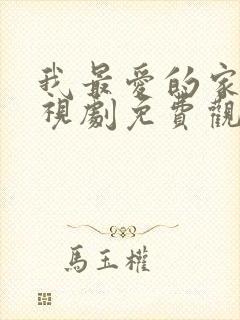 我最愛的家
視劇免費觀
馬玉權